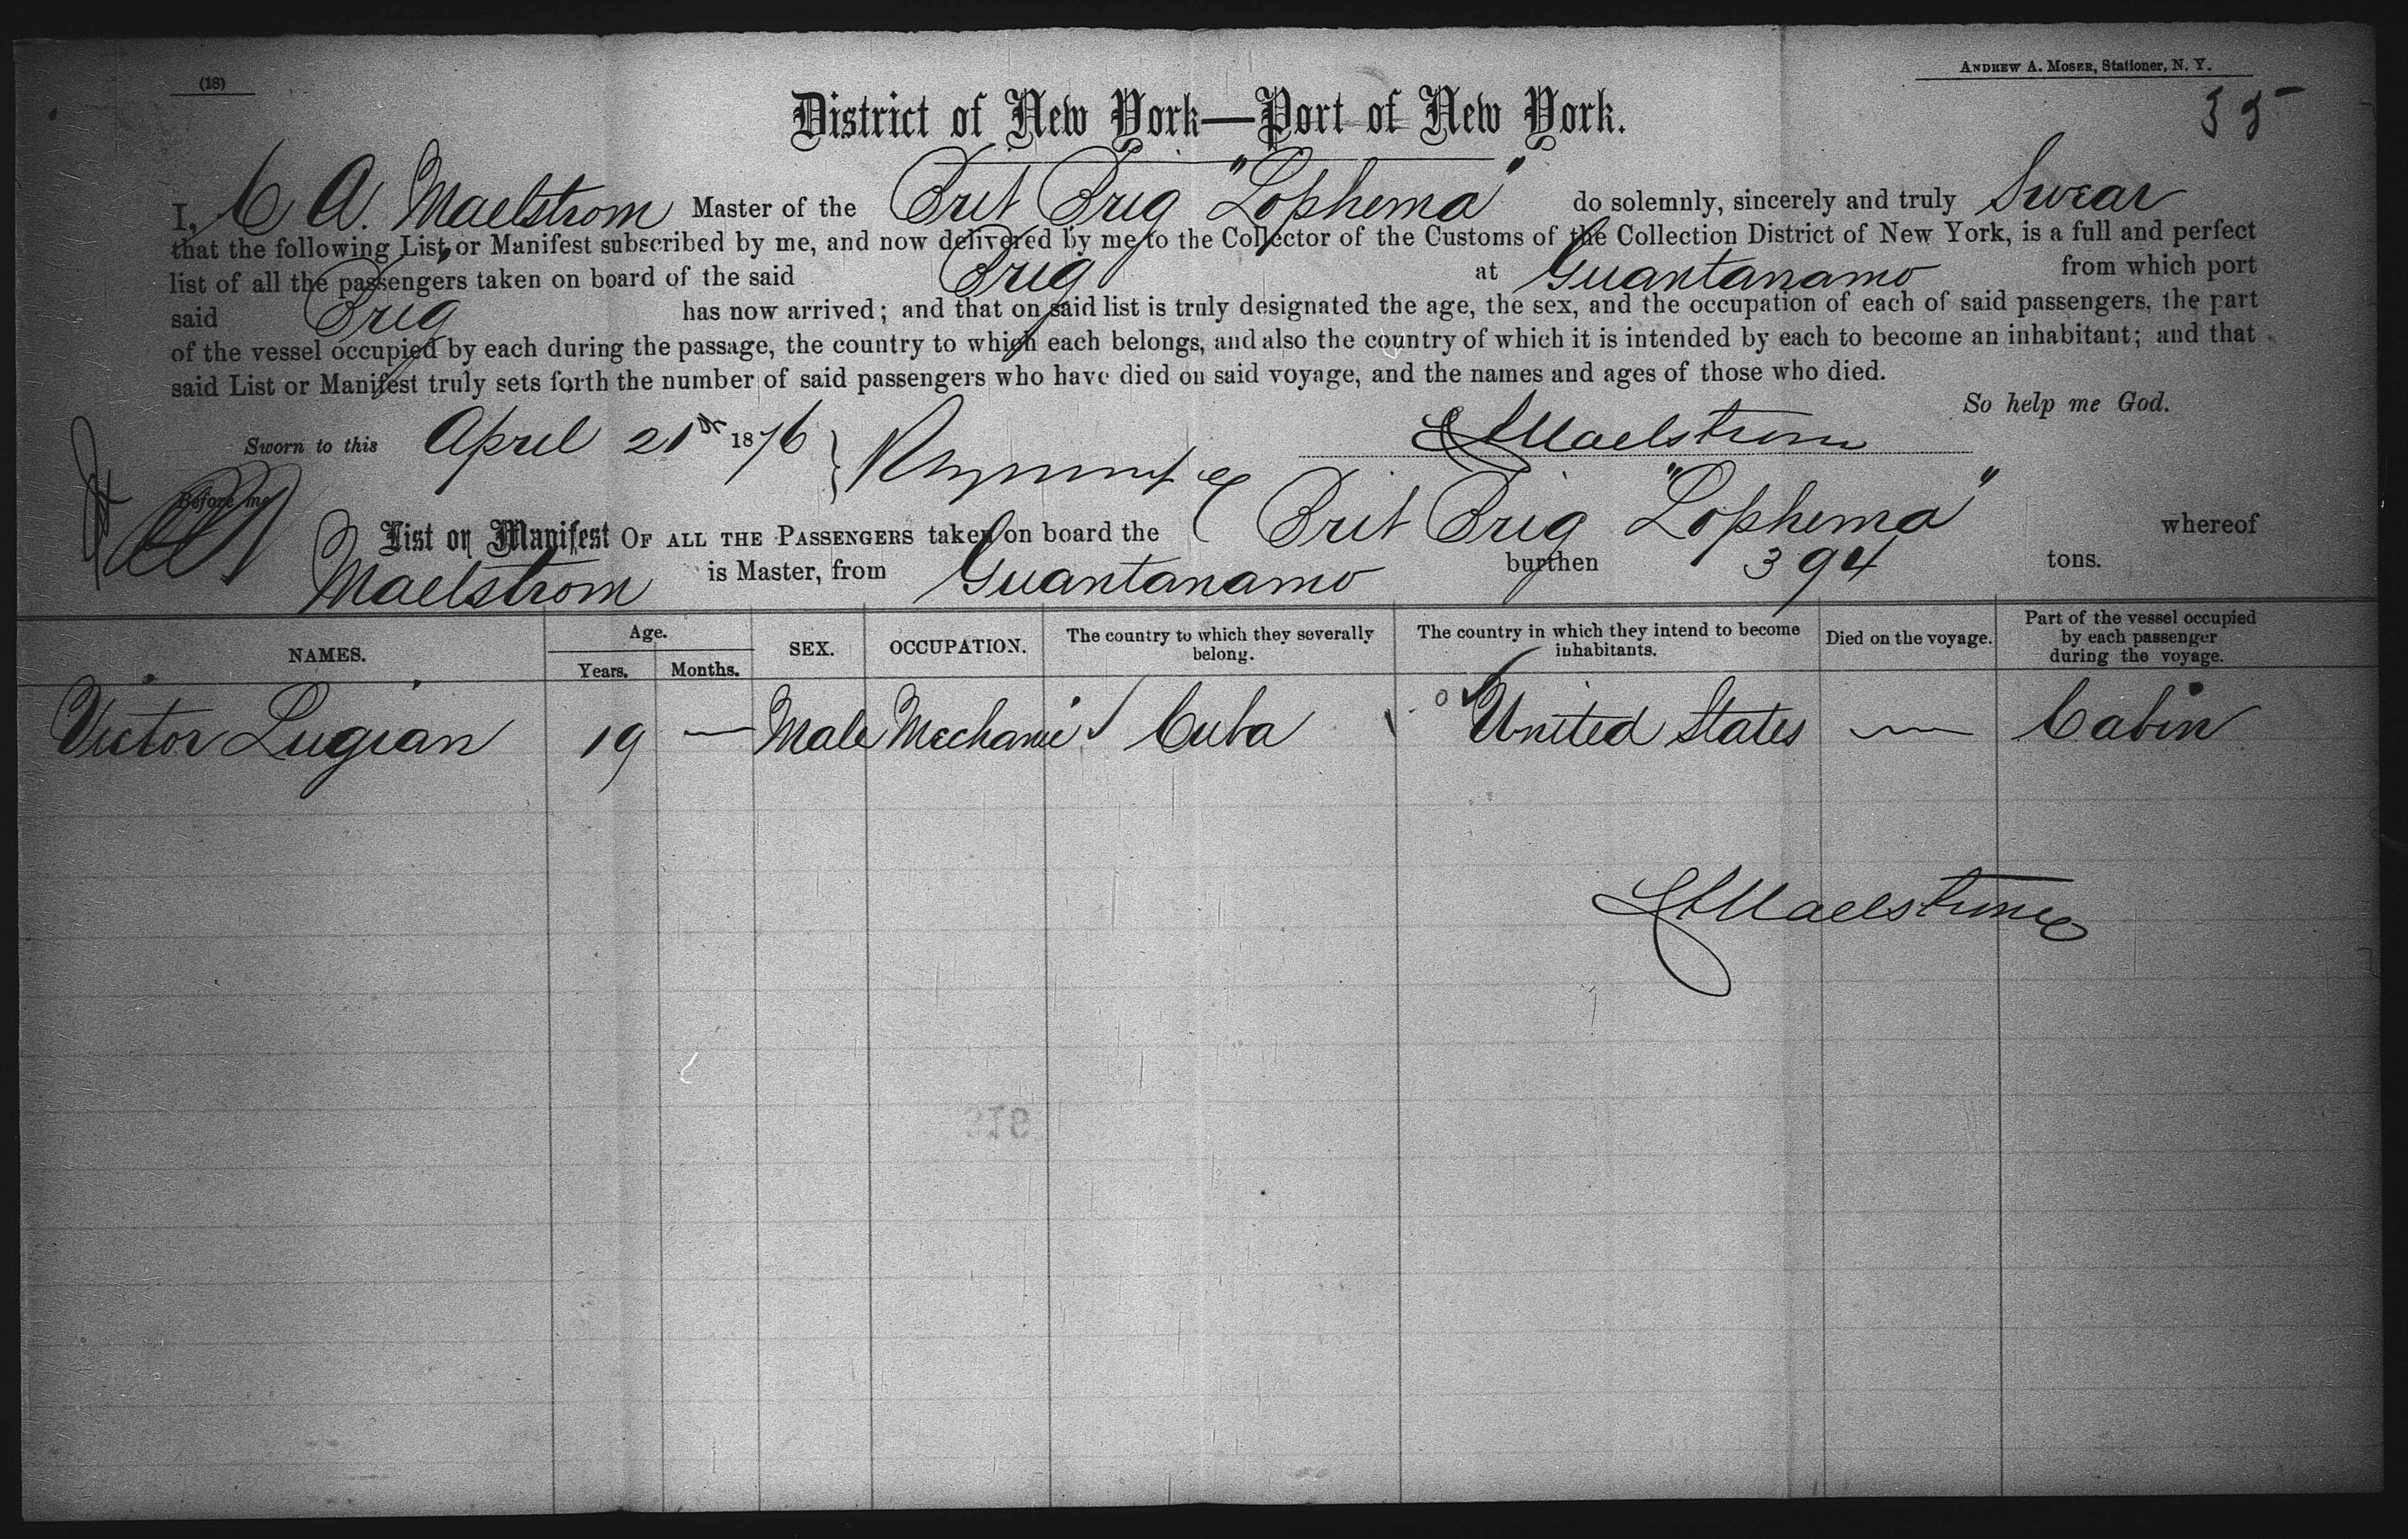 (18)
ANDREW A. MOSER, Stationer, N. Y.
35
District of New York—Port of New York.
I, C A. Maelstrom Master of the Brit Brig "Lophema" do solemnly, sincerely and truly Swear
that the following List or Manifest subscribed by me, and now delivered by me to the Collector of the Customs of the Collection District of New York, is a full and perfect
list of all the passengers taken on board of the said Brig at Guantanamo from which port
said Brig has now arrived; and that on said list is truly designated the age, the sex, and the occupation of each of said passengers, the part
of the vessel occupied by each during the passage, the country to which each belongs, and also the country of which it is intended by each to become an inhabitant; and that
said List or Manifest truly sets forth the number of said passengers who have died on said voyage, and the names and ages of those who died.
So help me God.
Sworn to this April 21st 1876 } C A Maelstrom
Before me
List or Manifest OF ALL THE PASSENGERS taken on board the Brit Brig "Lophema" whereof
Maelstrom is Master, from Guantanamo burthen 394 tons.
NAMES. Age. Years. Months. SEX. OCCUPATION. The country to which they severally belong. The country in which they intend to become inhabitants. Died on the voyage. Part of the vessel occupied by each passenger during the voyage.
Victor Lugian 19 — Male Mechanic Cuba United States — Cabin
C A Maelstrom